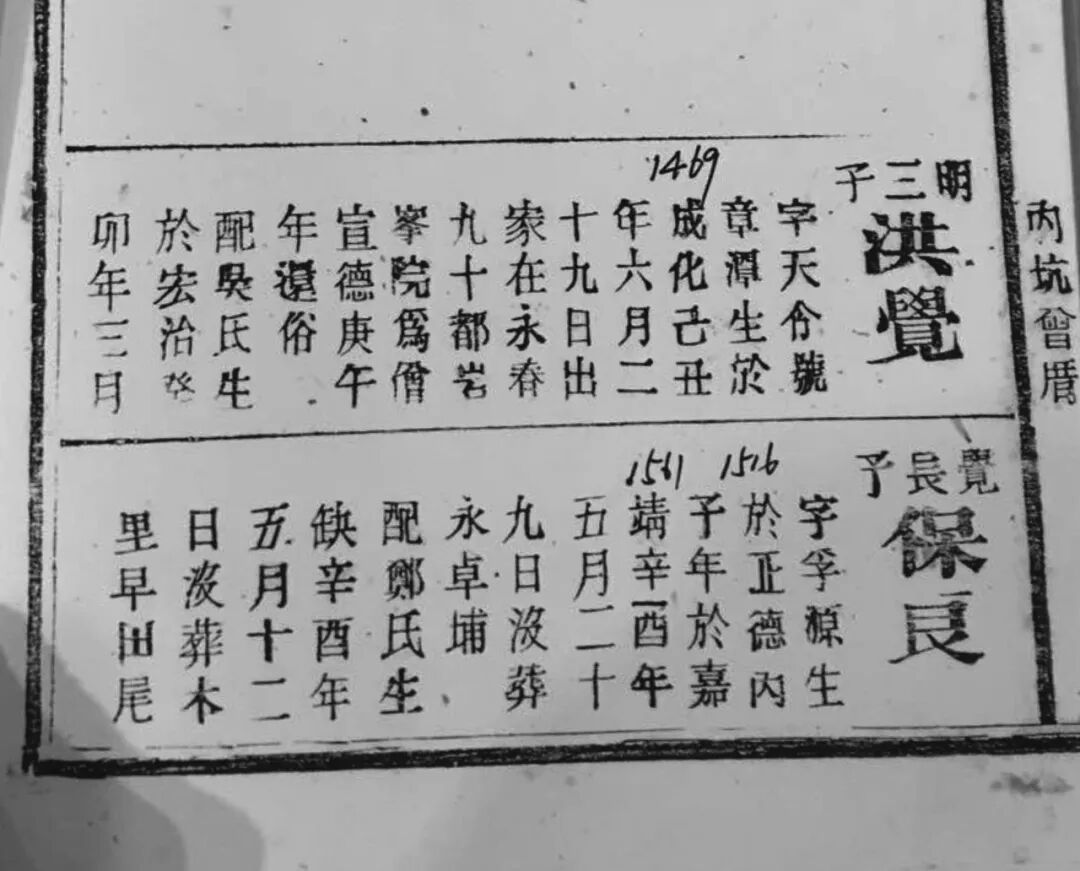 內坑曾厝
明三子
洪覺
1469
字天令號
章潭生於
成化己丑
年六月二
十九日出
家在永春
九十都岩
峯院爲僧
宣德庚午
年還俗
配吳氏生
於宏治癸
卯年三日
覺長子
保良
1516
1561
字孚源生
於正德丙
子年於嘉
靖辛酉年
五月二十
九日沒葬
永卓埔
配鄭氏生
缺辛酉年
五月十二
日沒葬木
里早田尾